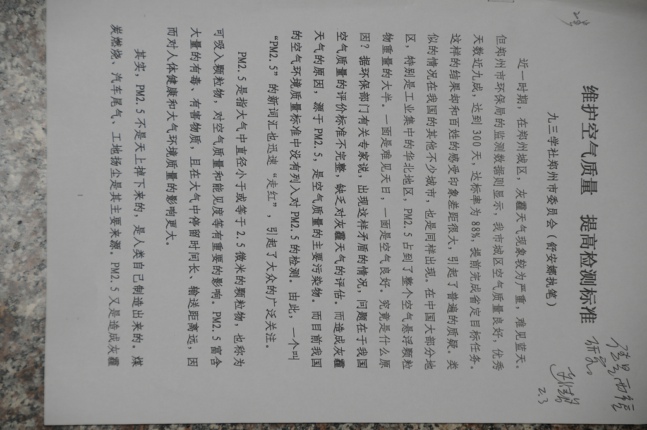 维护空气质量 提高检测标准
九三学社郑州市委员会（舒安娜执笔）
近一时期，在郑州城区，灰霾天气现象较为严重，难见蓝天。
但郑州市环保局的监测数据则显示，我市城区空气质量良好，优秀
天数近九成，达到 300 天，达标率为 88%，提前完成省定目标任务。
这样的结果却和百姓的感受印象差距很大，引起了普遍的质疑。类
似的情况在我国的其他不少城市，也是同样出现。在中国大部分地
区，特别是工业集中的华北地区，PM2.5 占到了整个空气悬浮颗粒
物重量的大半。一面是难见天日，一面是空气良好，究竟是什么原
因？据环保部门有关专家说，出现这样矛盾的情况，问题在于我国
空气质量的评价标准不完整，缺乏对灰霾天气的评估。而造成灰霾
天气的原因，源于 PM2.5，是空气质量的主要污染物。而目前我国
的空气环境质量标准中没有列入对 PM2.5 的检测。由此，一个叫
“PM2.5”的新词汇也迅速“走红”，引起了大众的广泛关注。
PM2.5 是指大气中直径小于或等于 2.5 微米的颗粒物，也称为
可吸入颗粒物，对空气质量和能见度等有重要的影响。PM2.5 富含
大量的有毒、有害物质，且在大气中停留时间长、输送距离远，因
而对人体健康和大气环境质量的影响更大。
其实，PM2.5 不是天上掉下来的，是人类自己制造出来的。煤
炭燃烧、汽车尾气、工地扬尘是其主要来源。PM2.5 又是造成灰霾
2.3